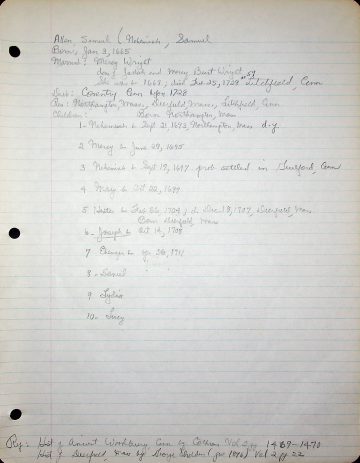 Allen, Samuel (Nehemiah, Samuel
Born, Jan 3, 1665
Married: Mercy Wright
dau of Judah and Mercy Burt Wright
She was b 1669, died Feb 25, 1728 Litchfield, Conn
Died: Coventry Conn Nov 1728
Res: Northampton, Mass, Deerfield, Mass, Litchfield, Conn
Children: Born Northampton, Mass
1- Nehemiah b Sept 21, 1693, Northampton, Mass d-y
2 Mercy b June 29, 1695
3 Nehemiah b Sept 19, 1697 prob settled in Guilford, Conn
4 Mary b Oct 22, 1699
5 Hester b Feb 26, 1704; d Dec 18, 1707, Deerfield, Mass
Born Deerfield, Mass
6- Joseph b Oct 14, 1708
7 Ebenezer b 26, 1711
8- Daniel
9 Lydia
10- Lucy
Ref: Hist of Ancient Woodbury, Conn by Cothren Vol 1469-1470
Hist of Deerfield, Mass by George Sheldon (1896) Vol 2 pg 22